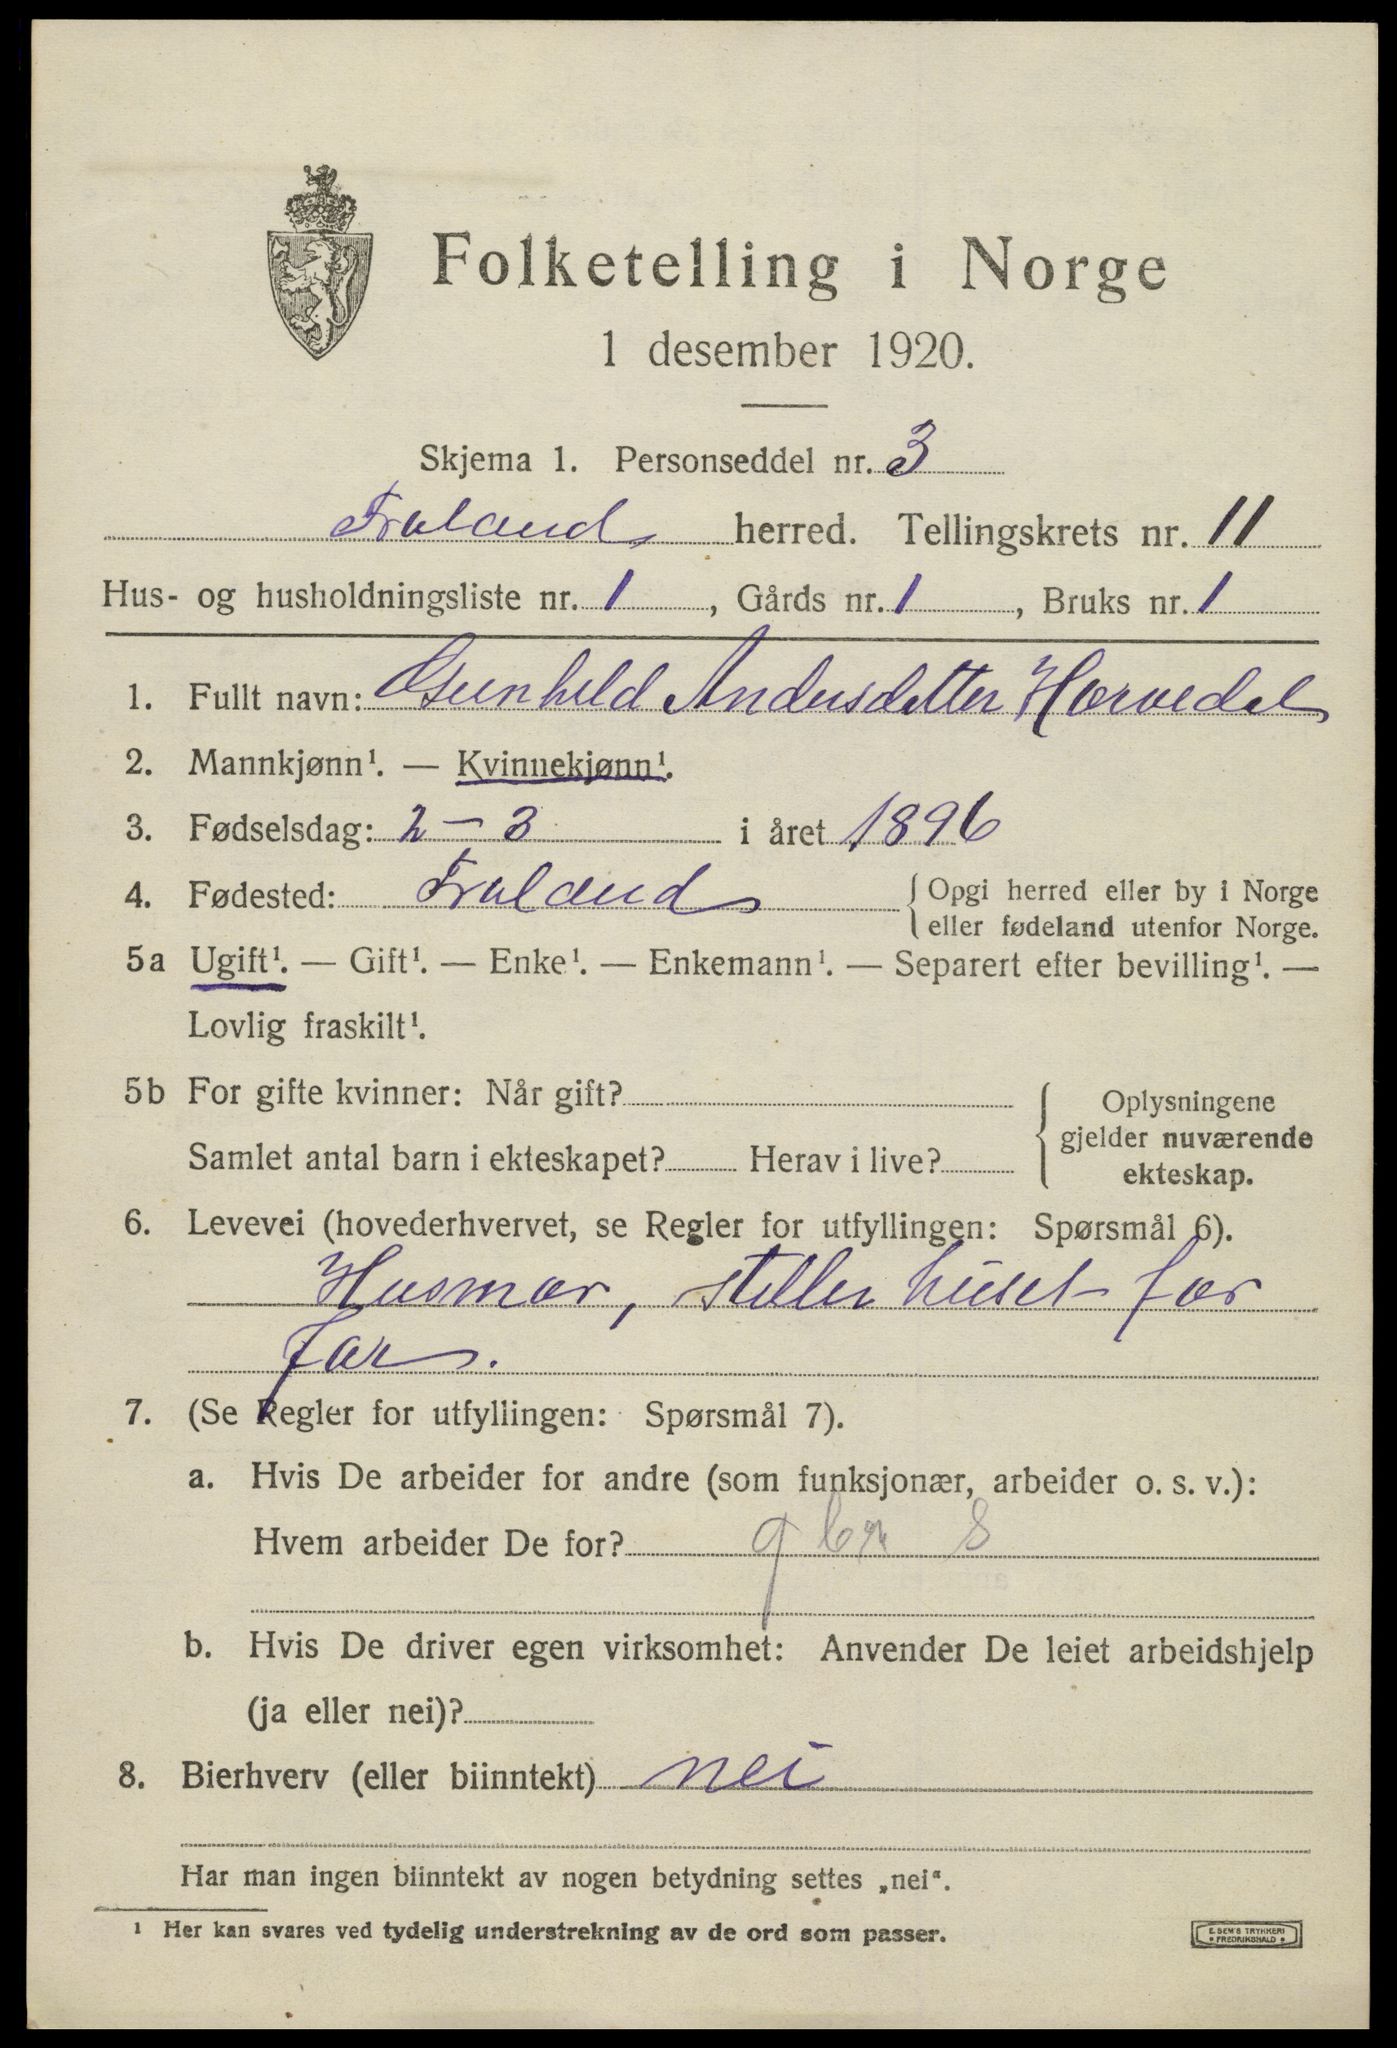 Folketelling i Norge
1 desember 1920.
Skjema 1. Personseddel nr. 3
Froland herred. Tellingskrets nr. 11
Hus- og husholdningsliste nr. 1, Gårds nr. 1, Bruks nr. 1
1. Fullt navn: Gunhild Andersdatter Hørvedal
2. Mannkjønn¹. — Kvinnekjønn¹.
3. Fødselsdag: 2 - 3 i året 1896
4. Fødested: Froland { Opgi herred eller by i Norge
eller fødeland utenfor Norge.
5a Ugift¹. — Gift¹. — Enke¹. — Enkemann¹. — Separert efter bevilling¹. —
Lovlig fraskilt¹.
5b For gifte kvinner: Når gift?
Samlet antal barn i ekteskapet? Herav i live?
Oplysningene
gjelder nuværende
ekteskap.
6. Levevei (hovederhvervet, se Regler for utfyllingen: Spørsmål 6).
Husmor, steller huset for
far.
7. (Se Regler for utfyllingen: Spørsmål 7).
a. Hvis De arbeider for andre (som funksjonær, arbeider o. s. v.):
Hvem arbeider De for?
b. Hvis De driver egen virksomhet: Anvender De leiet arbeidshjelp
(ja eller nei)?
8. Bierhverv (eller biinntekt) nei
Har man ingen biinntekt av nogen betydning settes „nei“.
¹ Her kan svares ved tydelig understrekning av de ord som passer.
E. SEM'S TRYKKERI
FREDRIKSHALD